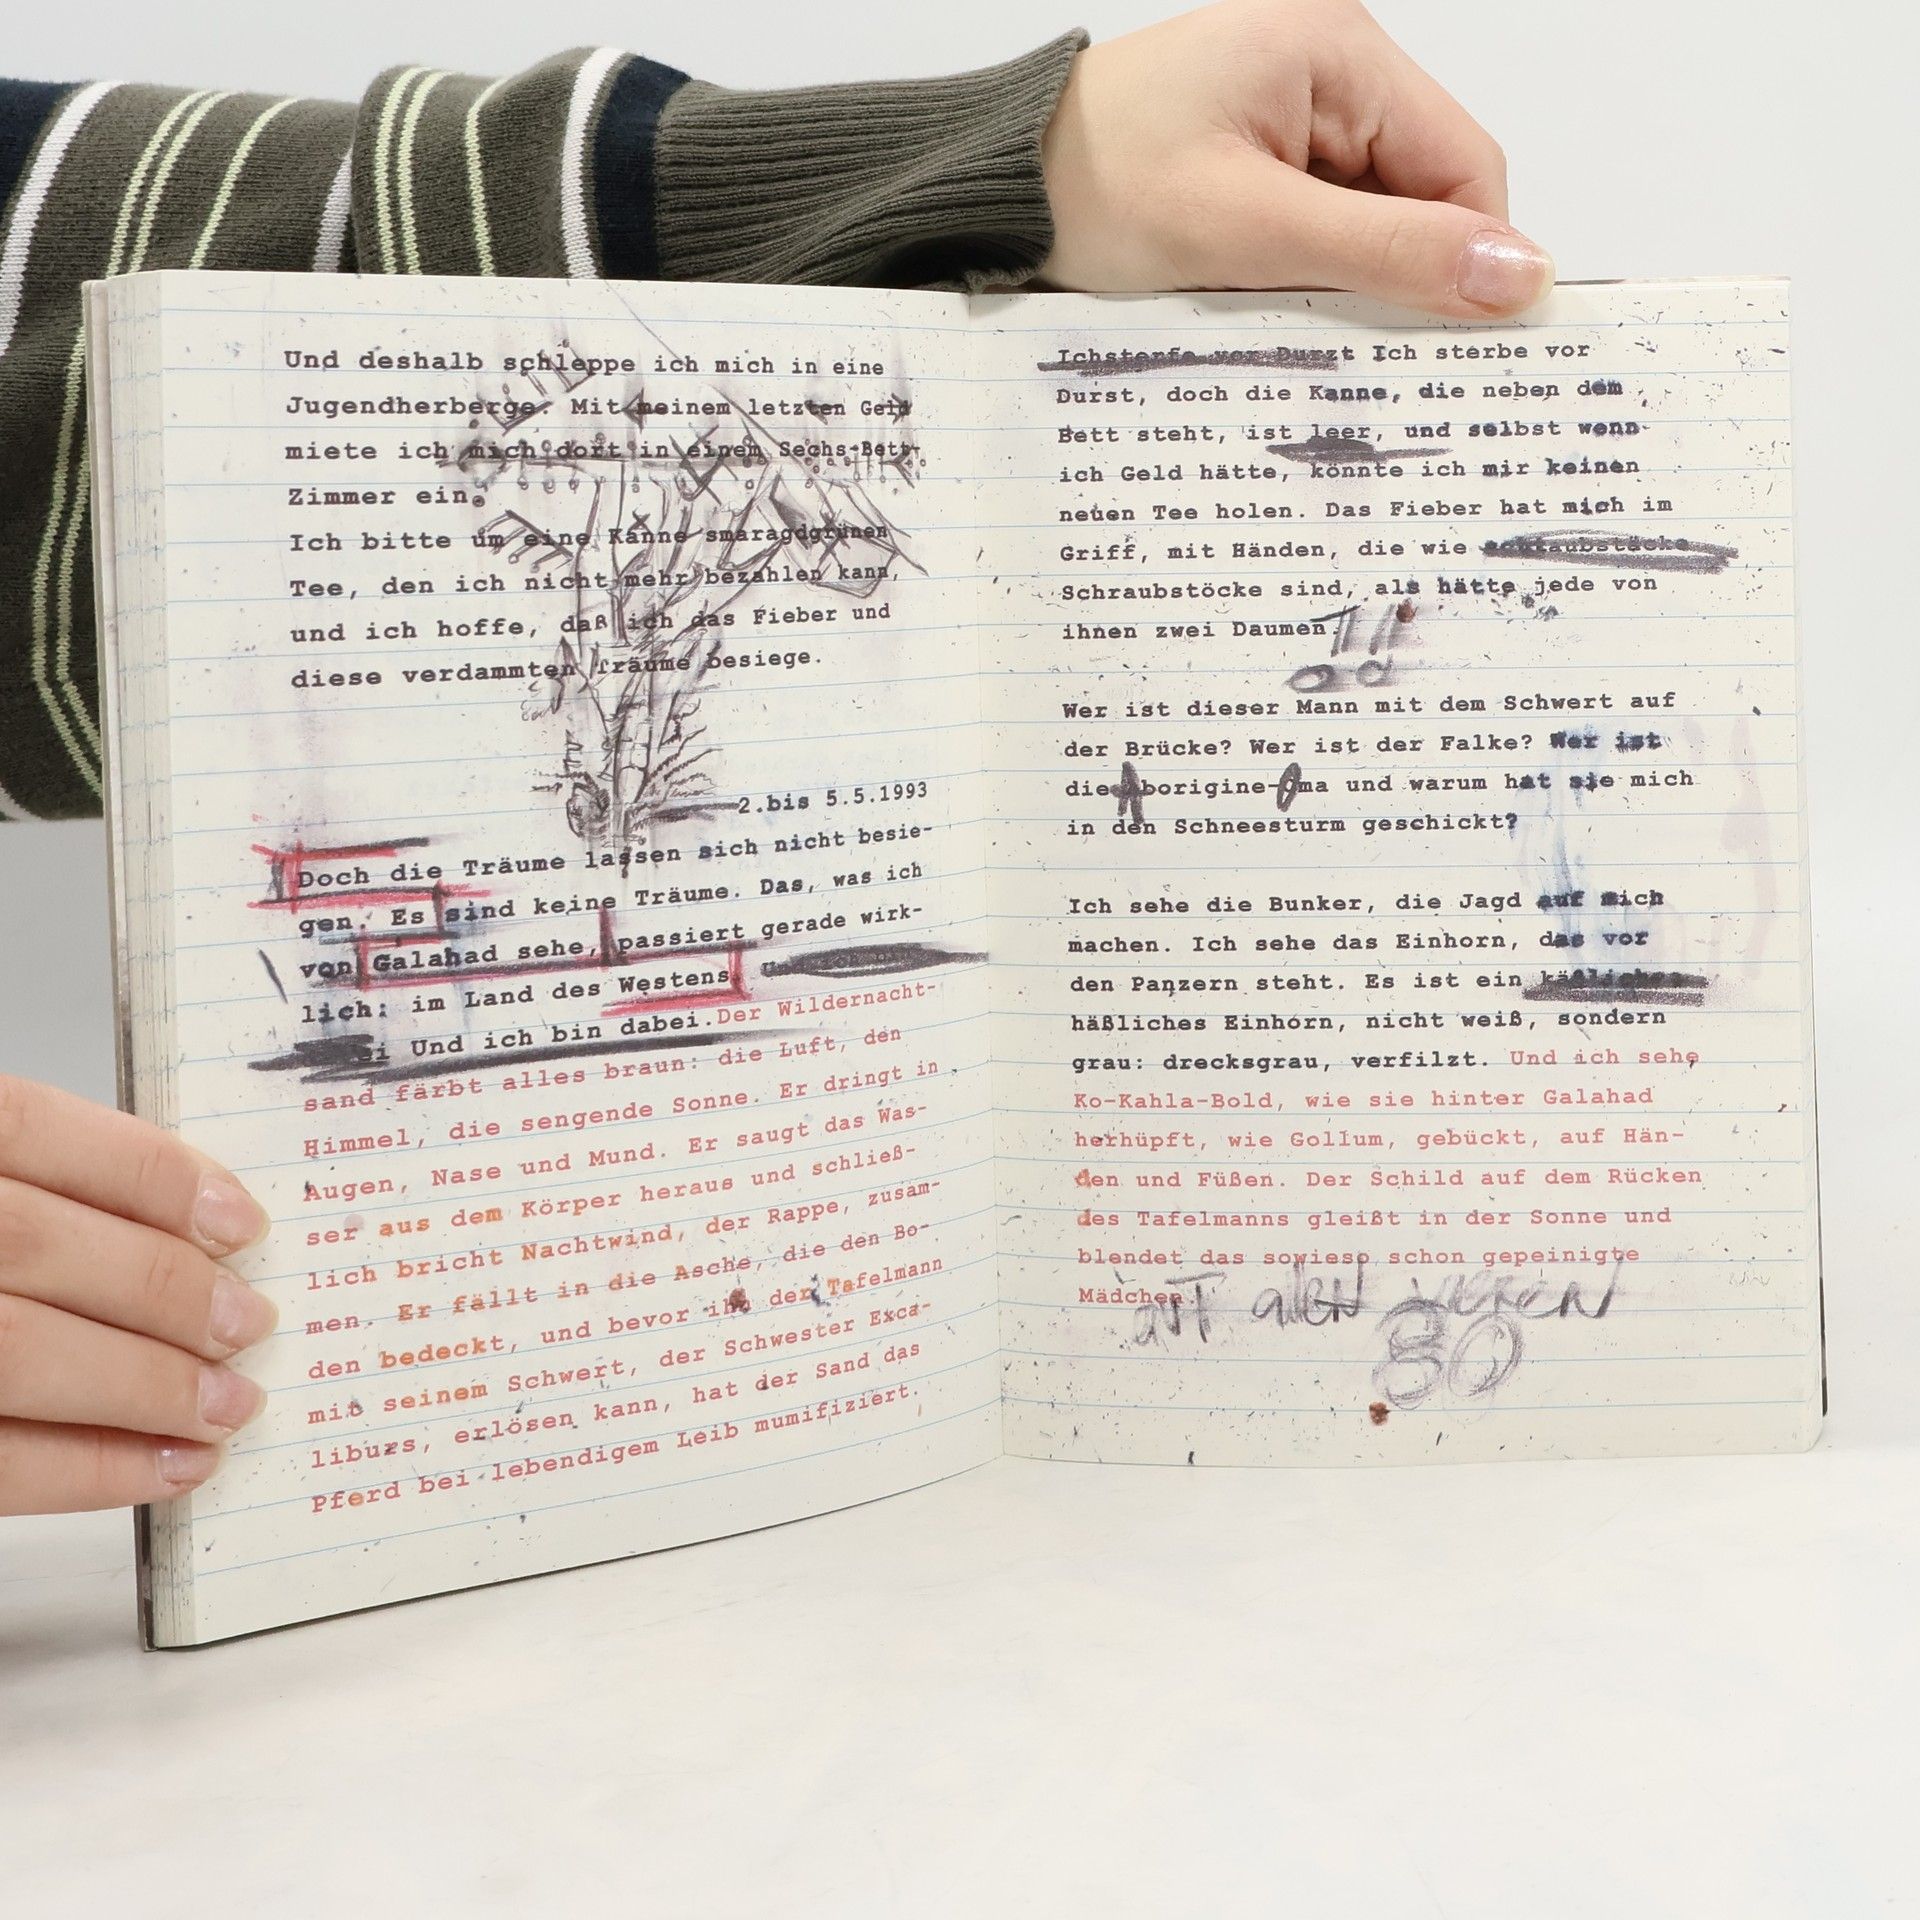 Und deshalb schleppe ich mich in eine
Jugendherberge. Mit meinem letzten Geld
miete ich mich dort in einem Sechs-Bett-
Zimmer ein.
Ich bitte um eine Kanne smaragdgrünen
Tee, den ich nicht mehr bezahlen kann,
und ich hoffe, daß ich das Fieber und
diese verdammten Träume besiege.
2.bis 5.5.1993
Doch die Träume lassen sich nicht besie-
gen. Es sind keine Träume. Das, was ich
von Galahad sehe, passiert gerade wirk-
lich: im Land des Westens. Und ich bin
Und ich bin dabei.Der Wildernacht-
sand färbt alles braun: die Luft, den
Himmel, die sengende Sonne. Er dringt in
Augen, Nase und Mund. Er saugt das Was-
ser aus dem Körper heraus und schließ-
lich bricht Nachtwind, der Rappe, zusam-
men. Er fällt in die Asche, die den Bo-
den bedeckt, und bevor ihn der Tafelmann
mit seinem Schwert, der Schwester Exca-
liburs, erlösen kann, hat der Sand das
Pferd bei lebendigem Leib mumifiziert.
Ichsterfe vor Durzt Ich sterbe vor
Durst, doch die Kanne, die neben dem
Bett steht, ist leer, und selbst wenn
ich Geld hätte, könnte ich mir keinen
neuen Tee holen. Das Fieber hat mich im
Griff, mit Händen, die wie
Schraubstöcke sind, als hätte jede von
ihnen zwei Daumen.
Wer ist dieser Mann mit dem Schwert auf
der Brücke? Wer ist der Falke? Wer ist
die Aborigine-Oma und warum hat sie mich
in den Schneesturm geschickt?
Ich sehe die Bunker, die Jagd auf mich
machen. Ich sehe das Einhorn, das vor
den Panzern steht. Es ist ein
häßliches Einhorn, nicht weiß, sondern
grau: drecksgrau, verfilzt. Und ich sehe
Ko-Kahla-Bold, wie sie hinter Galahad
herhüpft, wie Gollum, gebückt, auf Hän-
den und Füßen. Der Schild auf dem Rücken
des Tafelmanns gleißt in der Sonne und
blendet das sowieso schon gepeinigte
Mädchen.
80